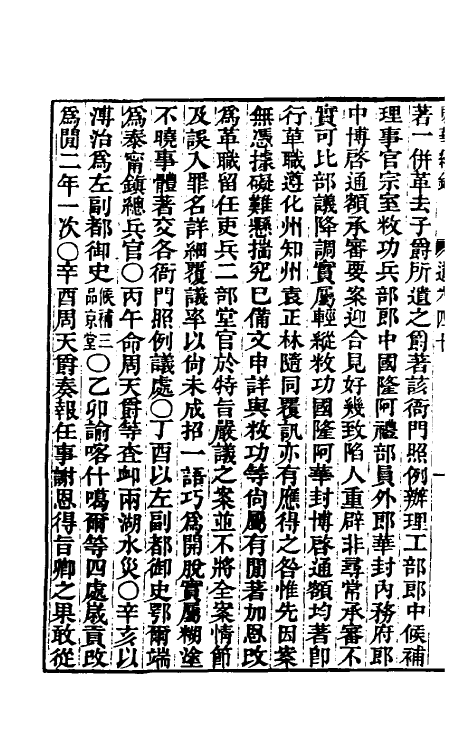 著一併革去子爵所遺之爵著該衙門照例辦理工部郎中候補
理事官宗室敉功兵部郎中國隆阿禮部員外郎華封內務府郎
中博啓通額承審要案迎合見好幾致陷人重辟非尋常承審不
實可比部議降調實屬輕縱敉功國隆阿華封博啓通額均著卽
行革職遵化州知州袁正林隨同覆訊亦有應得之咎惟先因案
無憑據礙難懸揣究已備文申詳與敉功等尙屬有閒著加恩改
爲革職留任吏兵二部堂官於特旨嚴議之案並不將全案情節
及誤入罪名詳細覆議率以尙未成招一語巧爲開脫實屬糊塗
不曉事體著交各衙門照例議處○丁酉以左副都御史鄂爾端
爲泰甯鎭總兵官○丙午命周天爵等查卹兩湖水災○辛亥以
溥治爲左副都御史候補三品京堂○乙卯諭喀什噶爾等四處歲貢改
爲閒二年一次○辛酉周天爵奏報任事謝恩得旨卿之果敢從